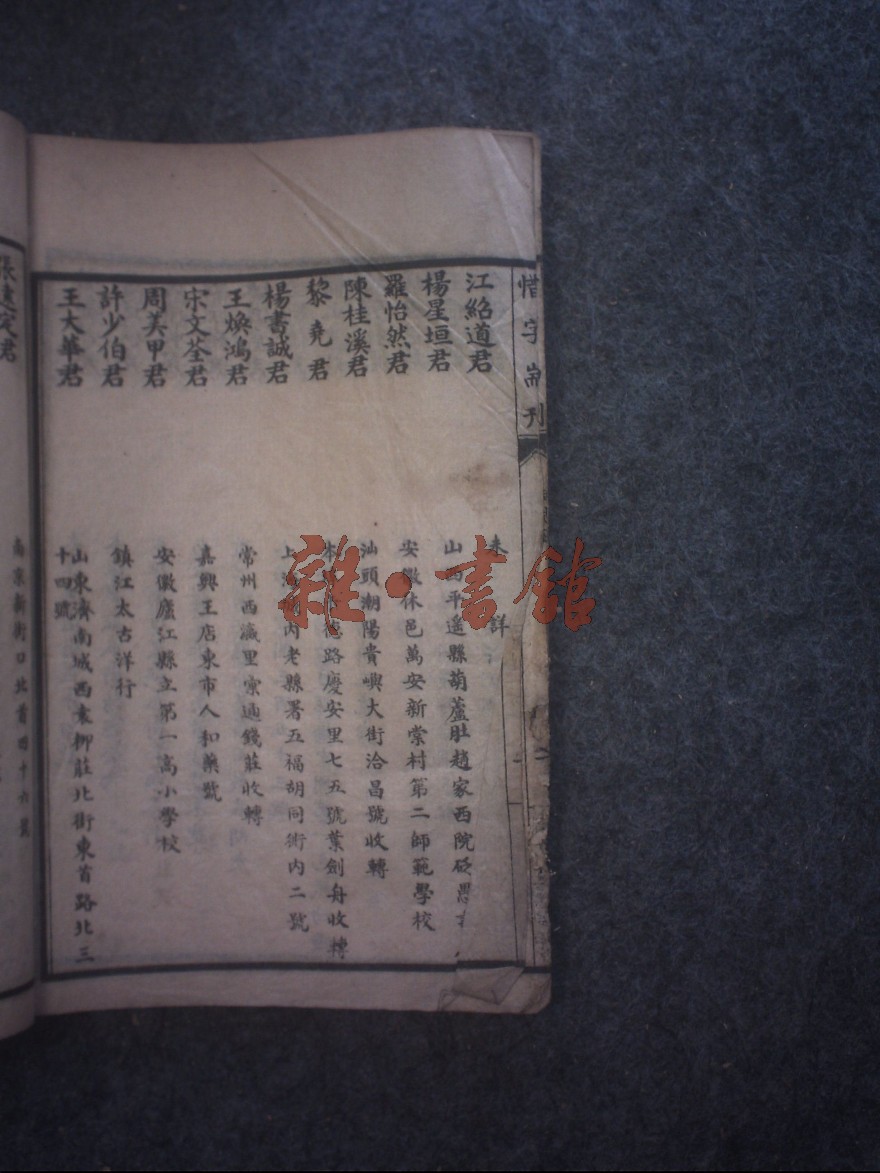 惜字崙刊
江紹道君
未詳
楊星垣君
山西平遙縣葫蘆肚趙家西院
羅怡然君
安徽休邑萬安新棠村第二師範學校
陳桂溪君
汕頭潮陽貴嶼大街洽昌號收轉
黎堯君
德路慶安里七五號葉劍舟收轉
楊書誠君
上海 內老縣署五福胡同術內二號
王煥鴻君
常州西瀛里 通錢莊收轉
宋文荃君
嘉興王店東市人和藥號
周美甲君
安徽廬江縣立第一高小學校
許少伯君
鎮江太古洋行
王大華君
山東濟南城西袁柳莊北街東首路北三
十四號
張 定君
南京新街口北首四十六號
雜·書館